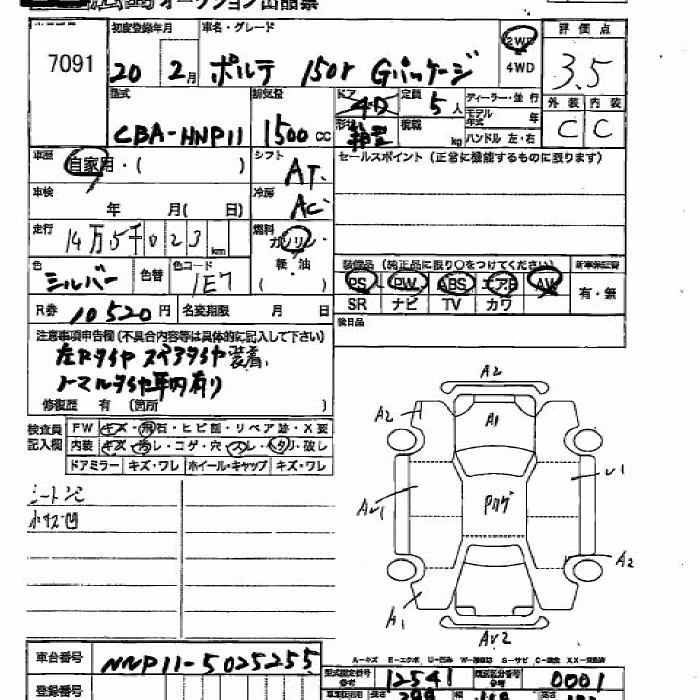 オークション出品票
7091
初度登録年月 車名・グレード 評価点
20 2月 ポルテ 150r Gパッケージ
2WD
4WD
3.5
型式 排気量 ドア 定員 ディーラー・並行 外装 内装
CBA-HNP11 1500cc 4D 5人
モデル年式 年
形状 箱型 積載 kg ハンドル 左・右
C C
車歴 自家用・( )
シフト AT.
セールスポイント (正常に機能するものに限ります)
車検 年 月( 日)
冷房 AC
走行 14万5千023km
燃料 ガソリン・軽・油 ( )
装備品 (純正品に限り○をつけてください) 新車保証書
PS PW ABS エアB AW 有・無
SR ナビ TV カワ
色 シルバー 色替 色コード 1E7
後日品
R券 10520円 名変期限 月 日
注意事項申告欄(不具合内容等は具体的に記入して下さい)
左Rタイヤ スペアタイヤ装着.
ノーマルタイヤ車内有り
修復歴 有 (箇所 )
検査員記入欄
FW キズ・飛石・ヒビ割・リペア跡・X要
内装 キズ・汚レ・コゲ・穴・スレ・タバ・破レ
ドアミラー キズ・ワレ ホイール・キャップ キズ・ワレ
シートシミ
小キズ凹
A2
A2
A1
AU1
Pカゲ
U1
A2
A1
AU2
A-キズ E-エクボ U-凹ミ W-補修跡 S-サビ C-腐食 XX-交換済
車台番号 NNP11-5025255
型式指定番号 12541 類別区分番号 0001
登録番号